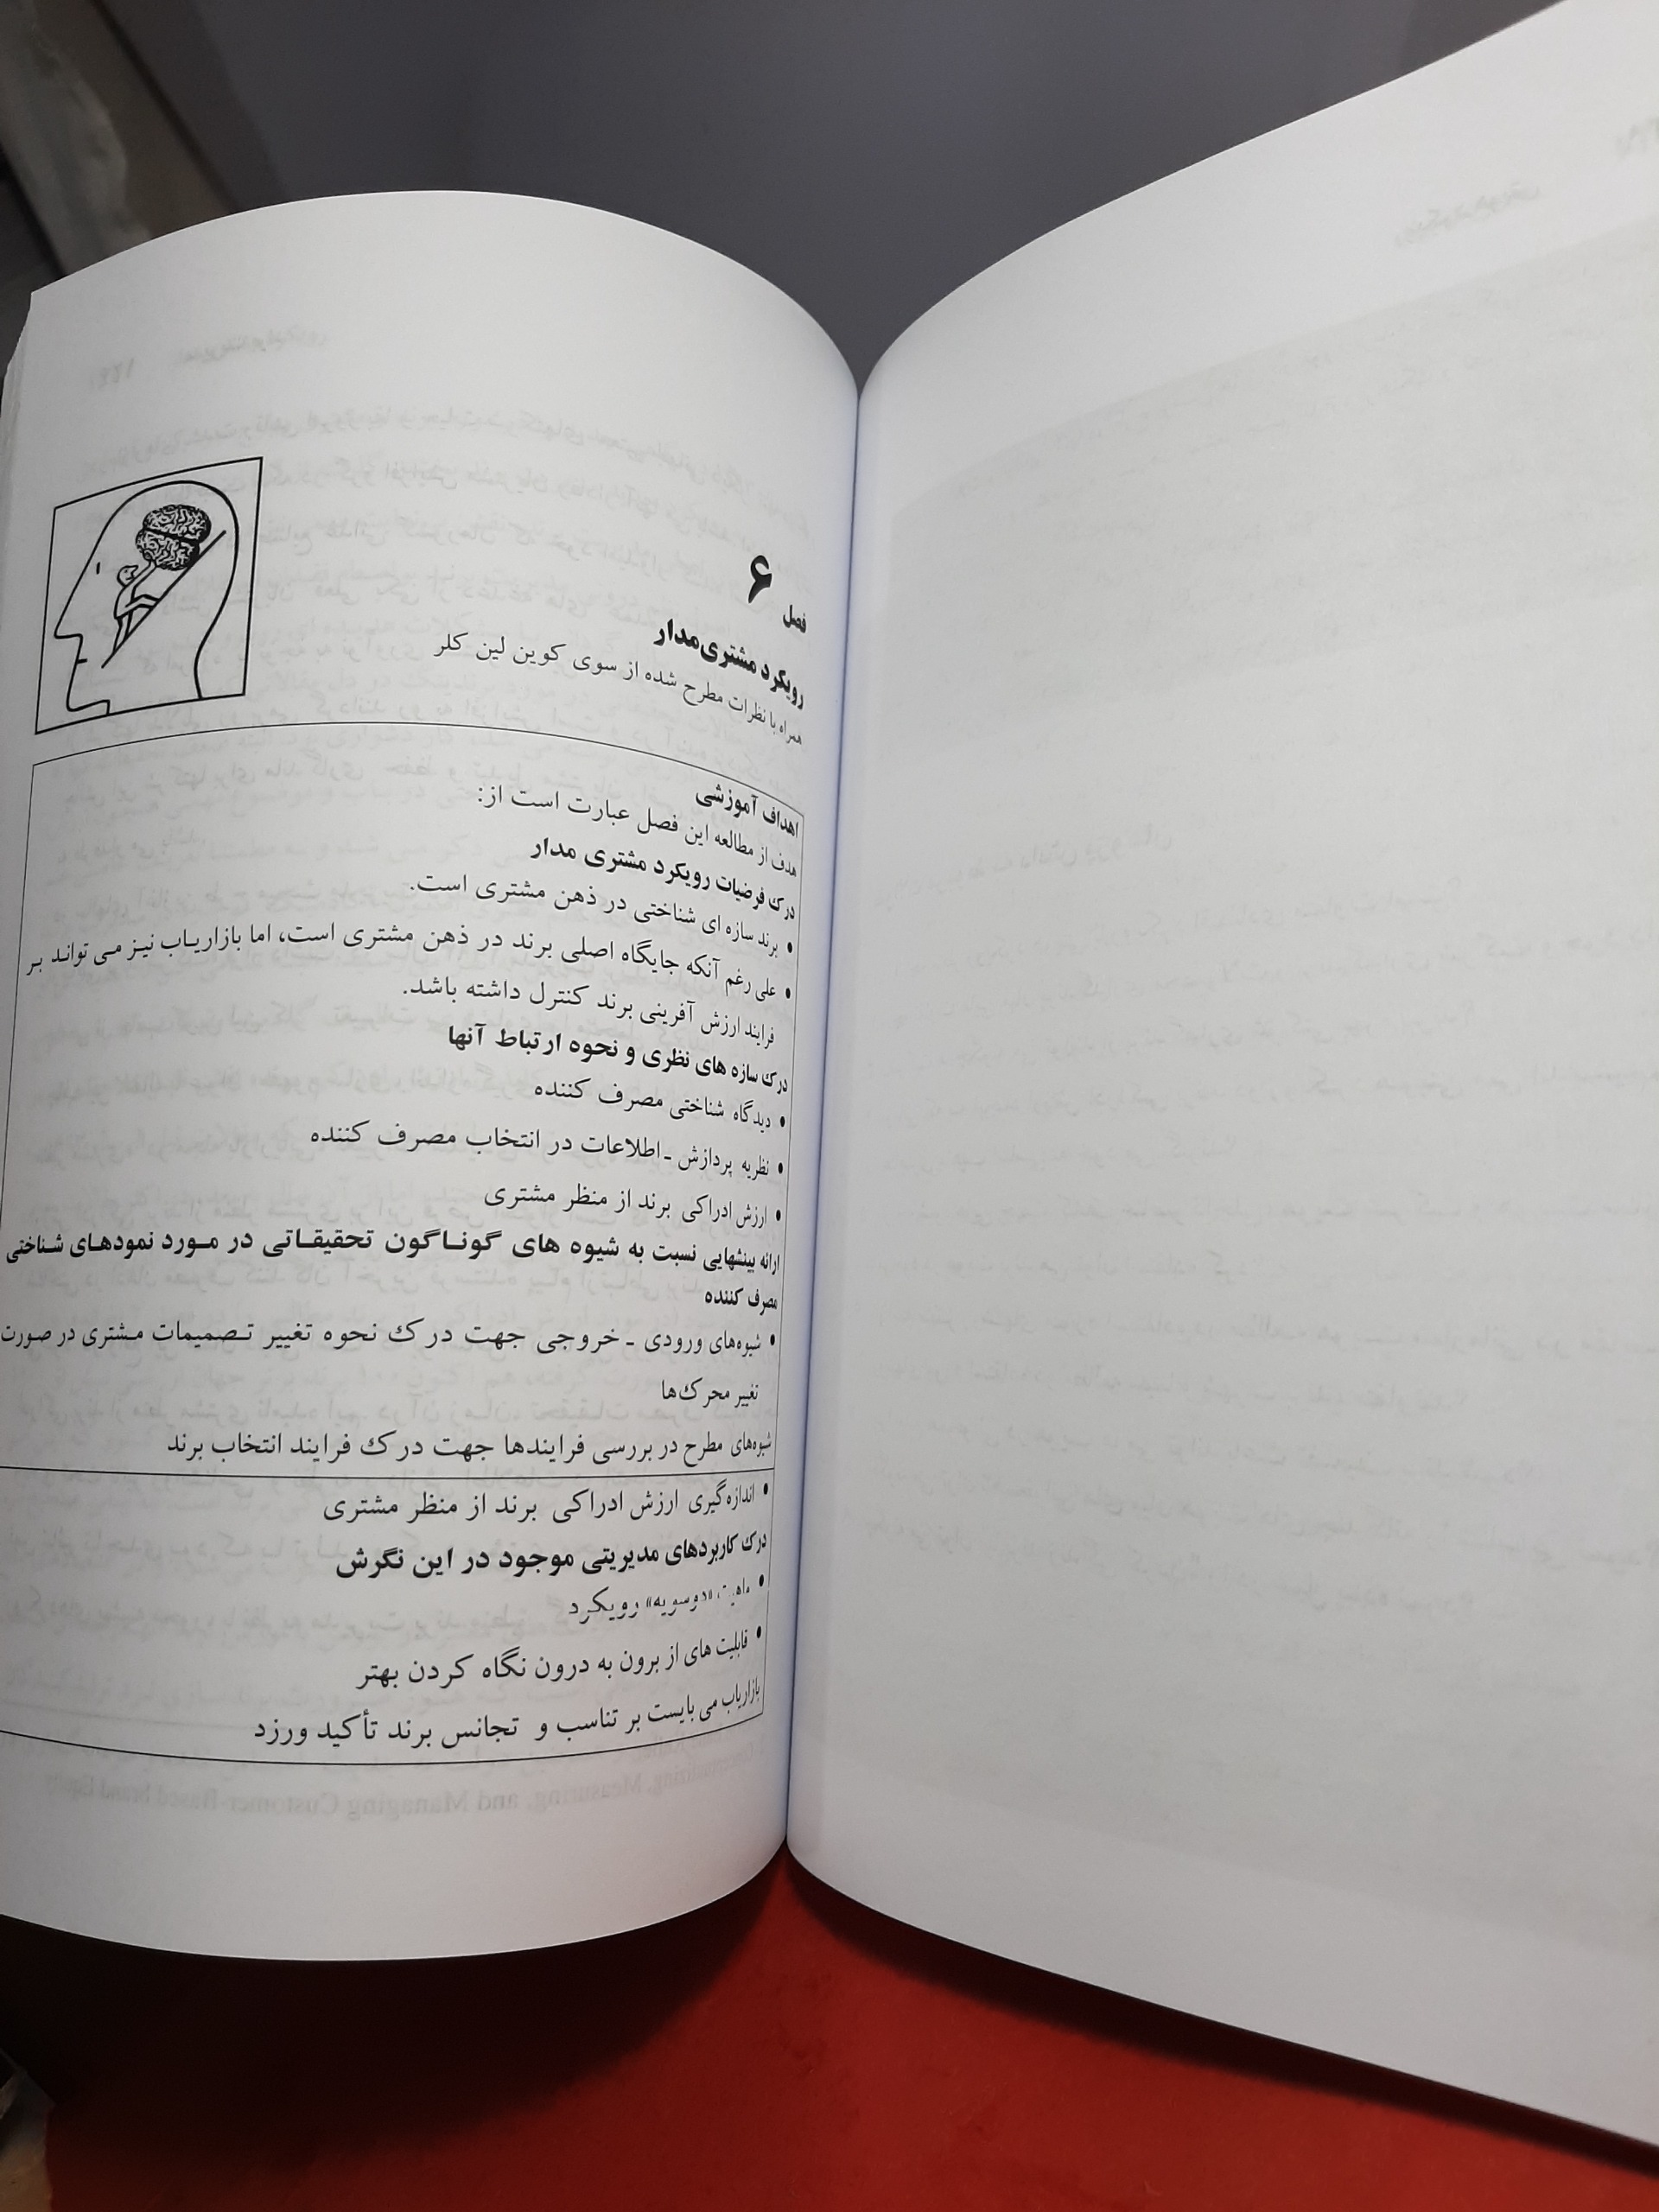 فصل ۶
رویکرد مشتری‌مدار
همراه با نظرات مطرح شده از سوی کوین لین کلر
اهداف آموزشی
هدف از مطالعه این فصل عبارت است از:
درک فرضیات رویکرد مشتری مدار
• برند سازه ای شناختی در ذهن مشتری است.
• علی رغم آنکه جایگاه اصلی برند در ذهن مشتری است، اما بازاریاب نیز می تواند بر
فرایند ارزش آفرینی برند کنترل داشته باشد.
درک سازه های نظری و نحوه ارتباط آنها
• دیدگاه شناختی مصرف کننده
• نظریه پردازش ـ اطلاعات در انتخاب مصرف کننده
• ارزش ادراکی برند از منظر مشتری
ارائه بینشهایی نسبت به شیوه های گوناگون تحقیقاتی در مورد نمودهای شناختی
مصرف کننده
• شیوه‌های ورودی ـ خروجی جهت درک نحوه تغییر تصمیمات مشتری در صورت
تغییر محرک‌ها
شیوه‌های مطرح در بررسی فرایندها جهت درک فرایند انتخاب برند
• اندازه‌گیری ارزش ادراکی برند از منظر مشتری
درک کاربردهای مدیریتی موجود در این نگرش
• ماهیت «دوسویه» رویکرد
• قابلیت های از برون به درون نگاه کردن بهتر
بازاریاب می بایست بر تناسب و تجانس برند تأکید ورزد